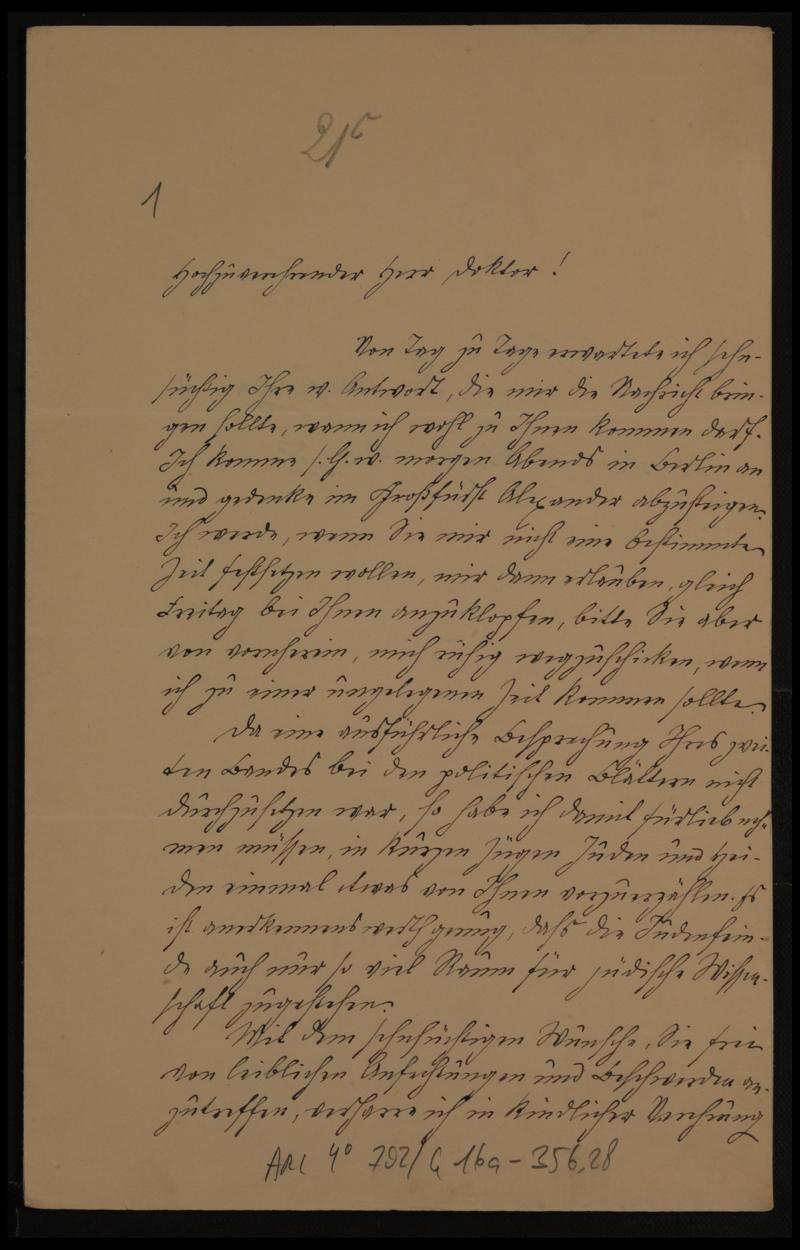 21c
1
Hochzuverehrender Herr Doktor!
Von Tag zu Tage erwartete ich sehn-
süchtig Ihre w. Antwort, die mir die Nachricht brin-
gen sollte, wann ich wohl zu Ihnen kommen darf.
Ich komme s. G. w. morgen Abends in Berlin an
und gedenke im Großfürst Alexander abzusteigen.
Ich werde, wenn Sie mir nicht eine bestimmte
Zeit festsetzen wollen, mir dann erlauben, gleich
Freitag bei Ihnen anzuklopfen, bitte Sie aber
von vornherein, mich ruhig wegzuschicken, wenn
ich zu einer ungelegenen Zeit kommen sollte.
Da eine ausführliche Besprechung Ihres zwei-
ten Bandes bei den politischen Blättern nicht
durchzusetzen war, so habe ich damit fürlieb neh-
men müssen, in kurzen Zügen Juden und Hei-
den einmal etwas von Ihnen vorzuerzählen. Es
ist anerkennenswerth genug, dass die Judenfein-
de auch nur so viel Raum für jüdische Wissen-
schaft zugestehen.
Mit dem sehnsüchtigen Wunsche, Sie frei
von leiblichen Anfechtungen und Beschwerden an-
zutreffen, verharre ich in kindlicher Verehrung
ARC 4° 792/G 16a - 356,28